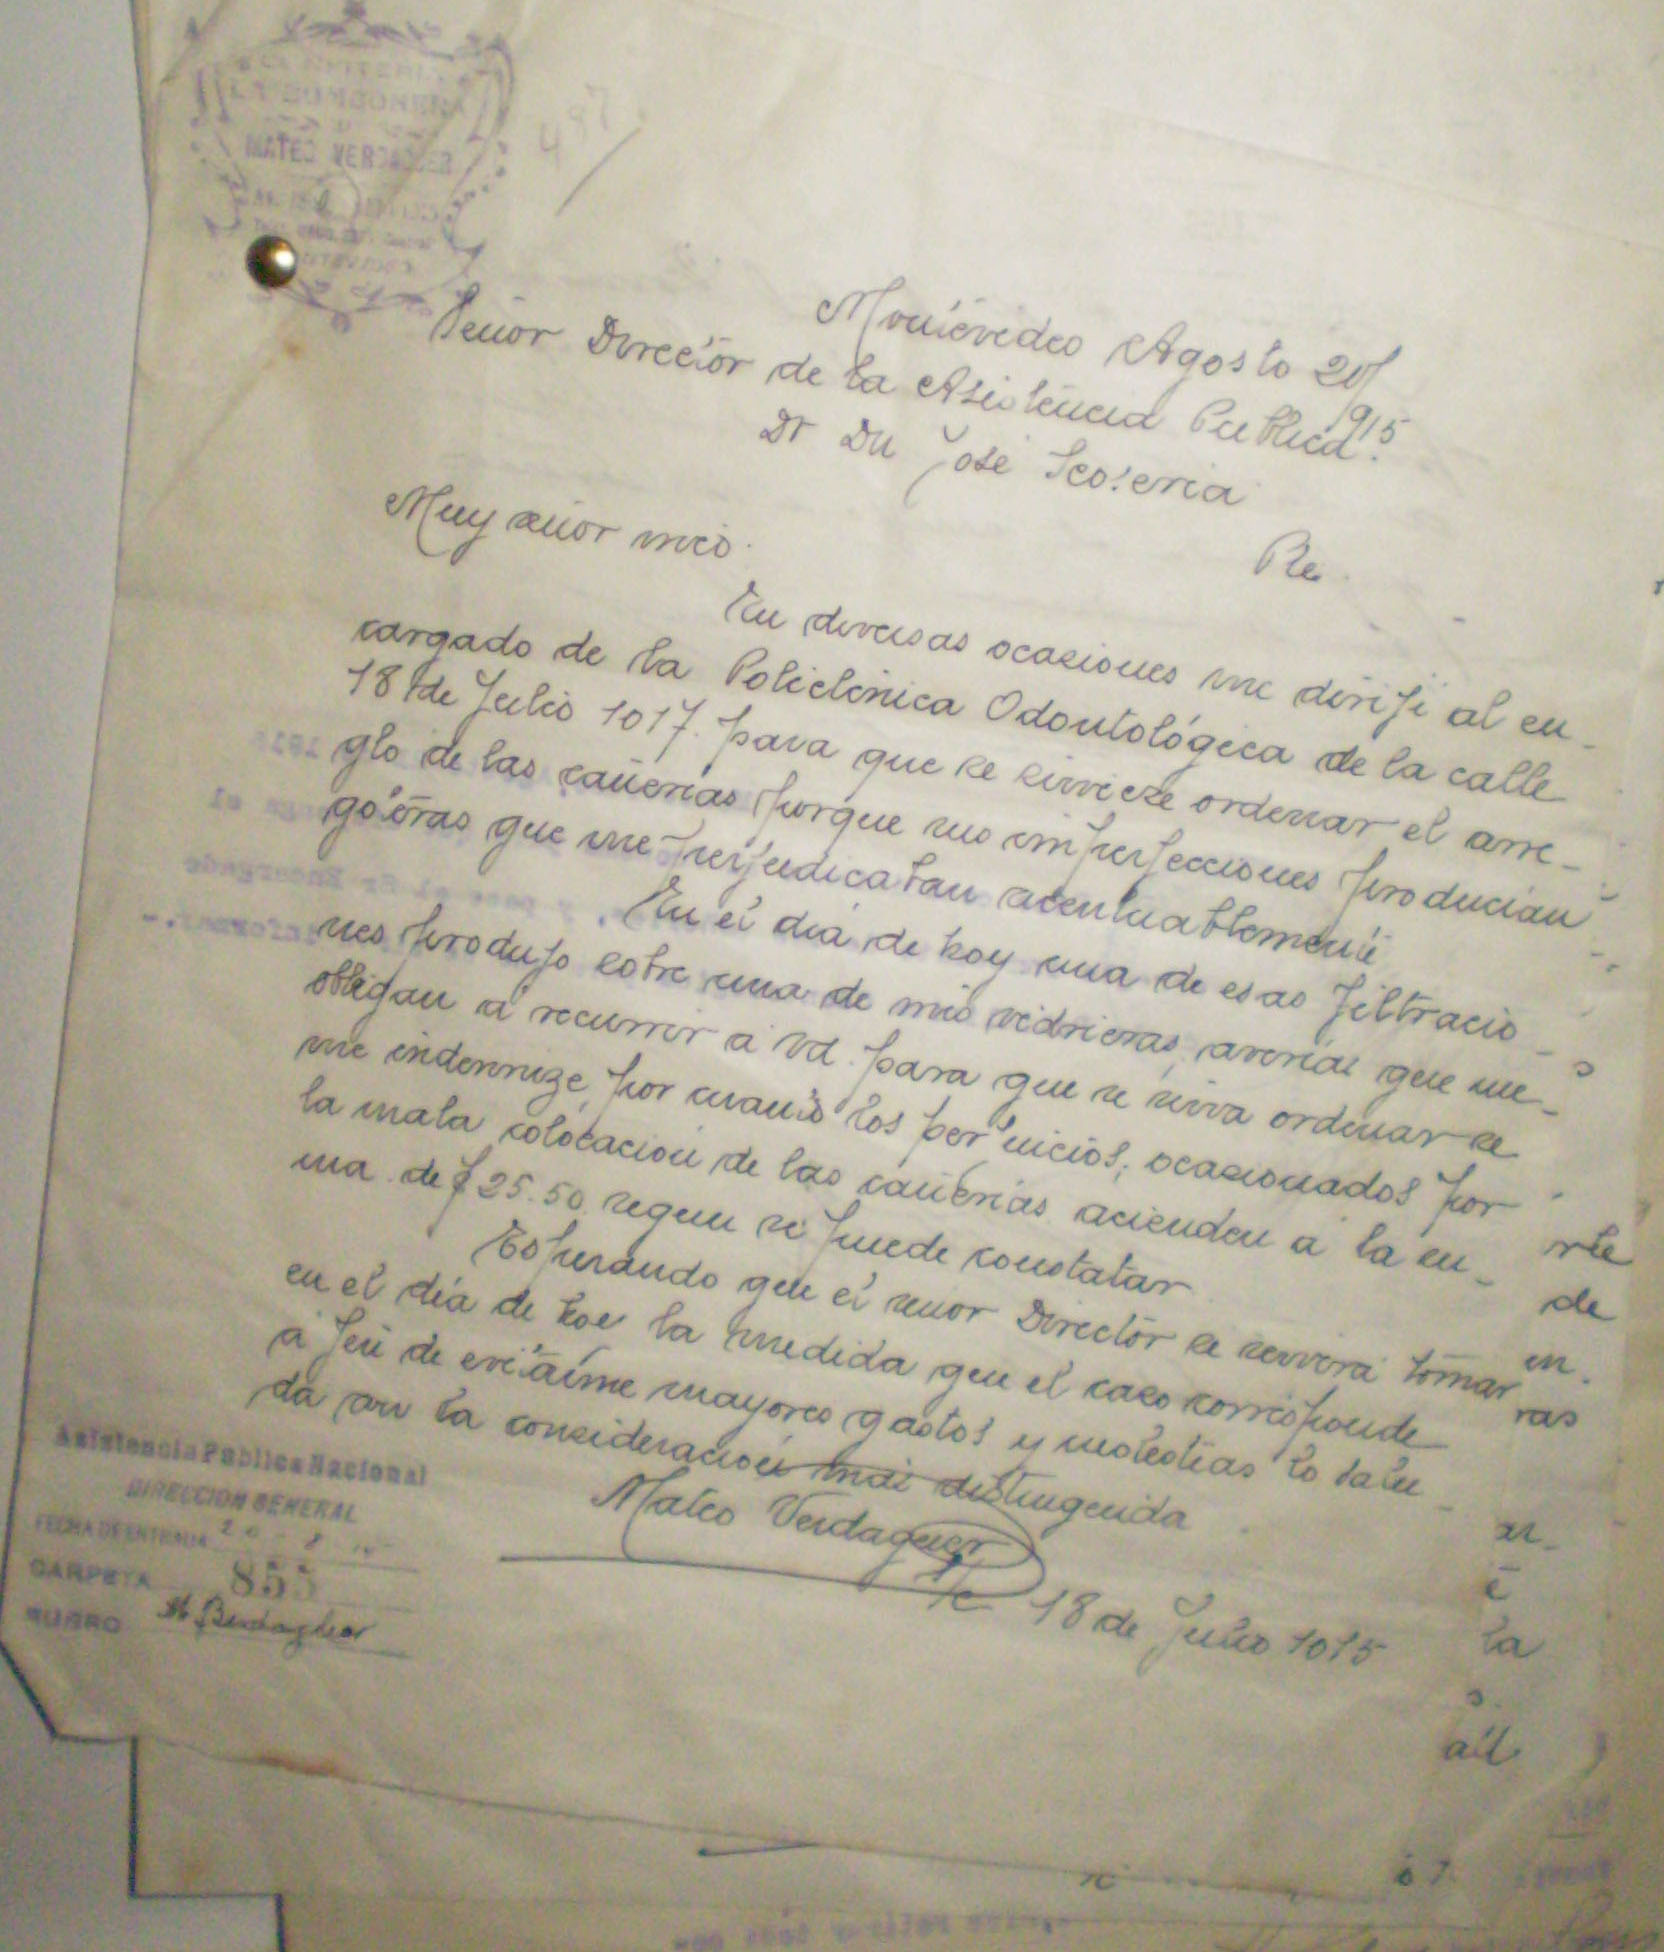 CONFITERIA
LA BOMBONERA
MATEO VERDAGUER
497
Montevideo Agosto 20/915
Señor Director de la Asistencia Publica.
Dr Dn José Scoseria
Pte.
Muy señor mio.
En diversas ocasiones me dirijí al en-
cargado de la Policlinica Odontológica de la calle
18 de Julio 1017. para que se sirviese ordenar el arre-
glo de las cañerias porque sus imperfecciones producian
goteras que me perjudicaban acentuablemente
En el dia de hoy una de esas filtracio-
nes produjo sobre una de mis vidrieras, averias que me
obligan á recurrir á Vd. para que se sirva ordenar se
me indemnize, por cuanto los perjuicios, ocasionados por
la mala colocacion de las cañerias acienden á la su-
ma de $ 25.50 segun se puede constatar
Esperando que el señor Director se servira tomar
en el dia de hoe la medida que el caso corresponde
á fin de evitarme mayores gastos y molestias lo salu-
da con la consideracion mas distinguida
Mateo Verdaguer
S/c 18 de Julio 1015
Asistencia Publica Nacional
DIRECCION GENERAL
FECHA DE ENTRADA 20-8-15
CARPETA 855
RUBRO M Berdagher
rte
de
en.
ras
la